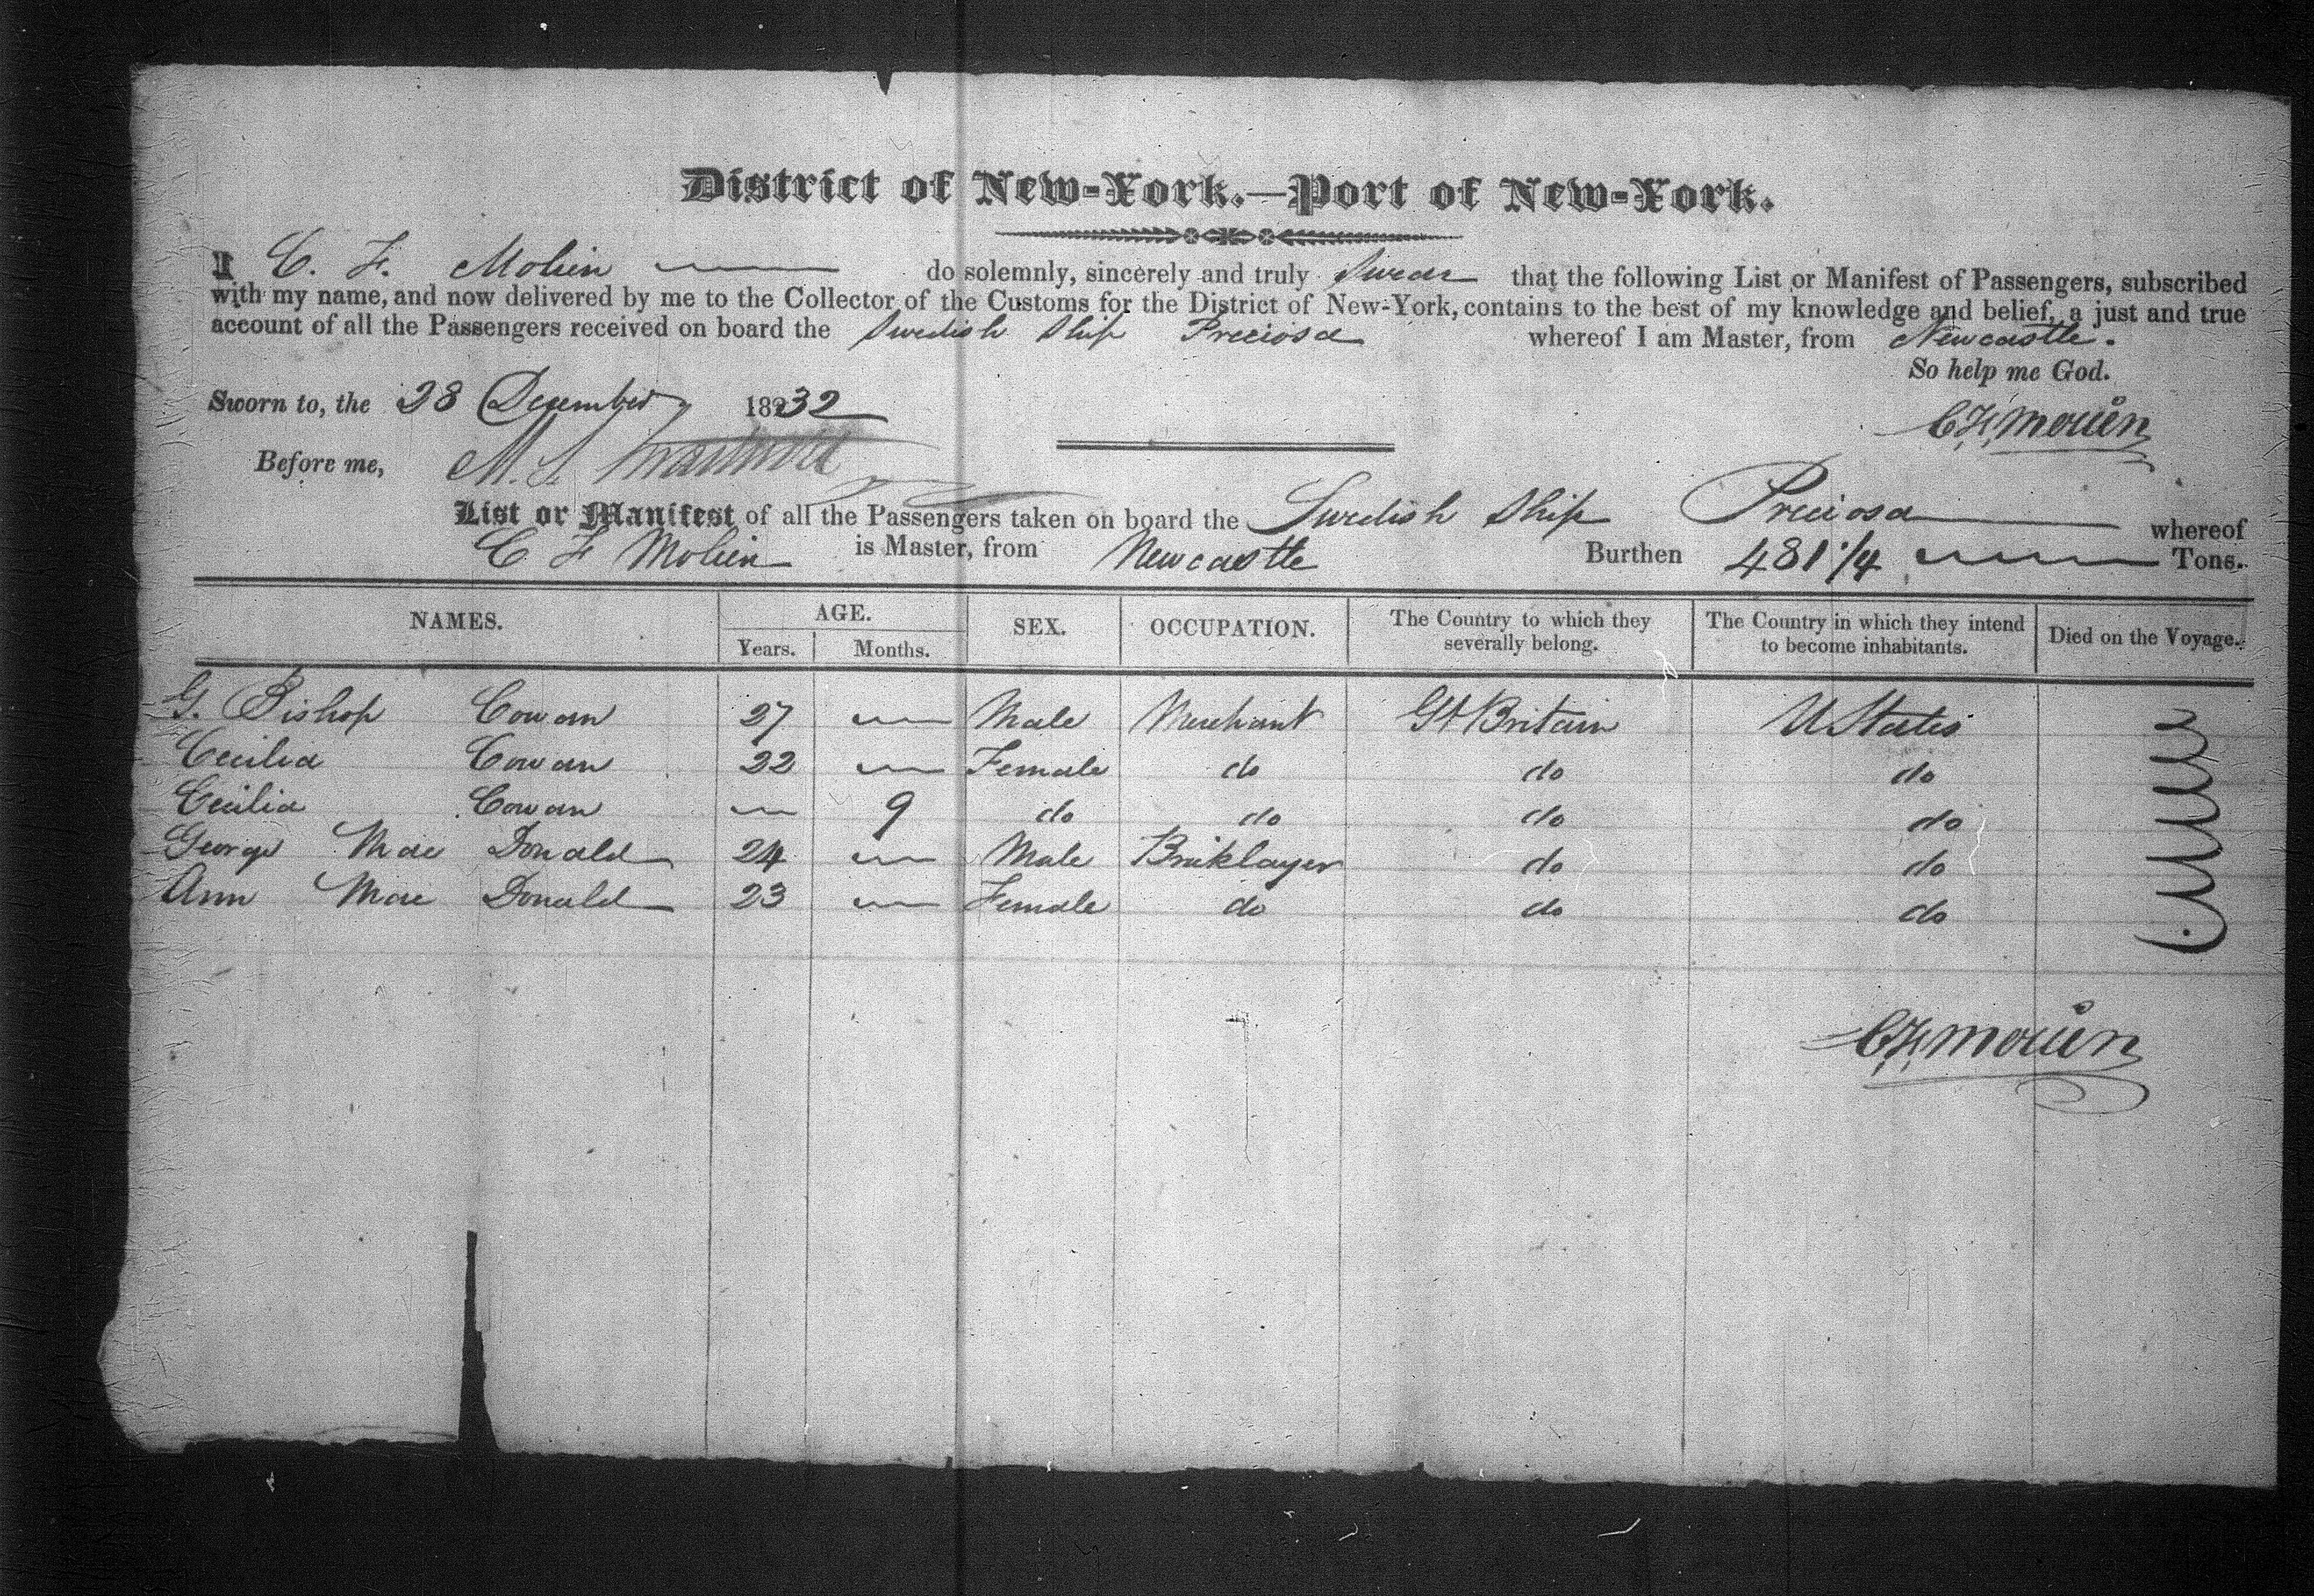 District of New-York.—Port of New-York.
I C. F. Molien do solemnly, sincerely and truly Swear that the following List or Manifest of Passengers, subscribed
with my name, and now delivered by me to the Collector of the Customs for the District of New-York, contains to the best of my knowledge and belief, a just and true
account of all the Passengers received on board the Swedish Ship Preciosa whereof I am Master, from Newcastle.
So help me God.
Sworn to, the 28 December 1832
C F Molien
Before me, M. S.
List or Manifest of all the Passengers taken on board the Swedish Ship Preciosa whereof
C F Molien is Master, from Newcastle Burthen 481 1/4 Tons.
NAMES. AGE. Years. Months. SEX. OCCUPATION. The Country to which they severally belong. The Country in which they intend to become inhabitants. Died on the Voyage.
G. Bishop Cowan 27 — Male Merchant Gt Britain U States
Cecilia Cowan 22 — Female do do do
Cecilia Cowan — 9 do do do do
George Mac Donald 24 — Male Bricklayer do do
Ann Mac Donald 23 — Female do do do
C F Molien